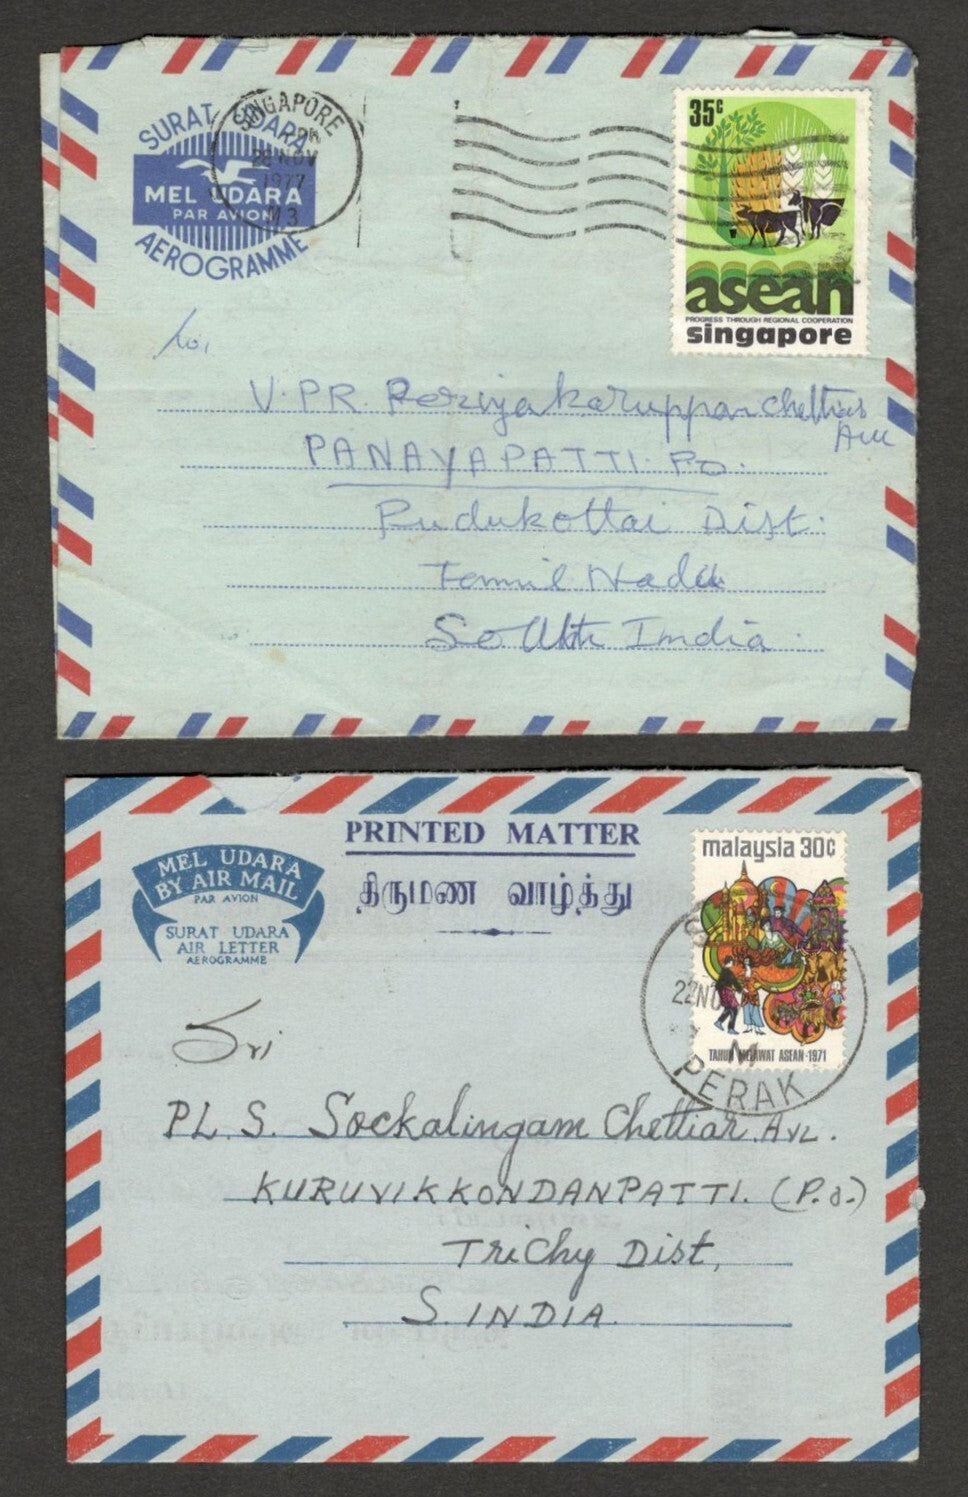 SURAT UDARA
MEL UDARA
PAR AVION
AEROGRAMME
SINGAPORE
28 NOV
1977
M3
35c
asean
PROGRESS THROUGH REGIONAL COOPERATION
singapore
To,
V. PR. Periyakaruppan Chettiar
PANAYAPATTI. P.O.
Pudukottai Dist.
Tamil Nadu
South India.
MEL UDARA
BY AIR MAIL
PAR AVION
SURAT UDARA
AIR LETTER
AEROGRAMME
PRINTED MATTER
திருமண வாழ்த்து
malaysia 30c
TAHUN MELAWAT ASEAN-1971
22 NO
M
PERAK
Sri
PL. S. Sockalingam Chettiar. AVL.
KURUVIKKONDANPATTI. (P.O.)
Trichy Dist,
S. INDIA.